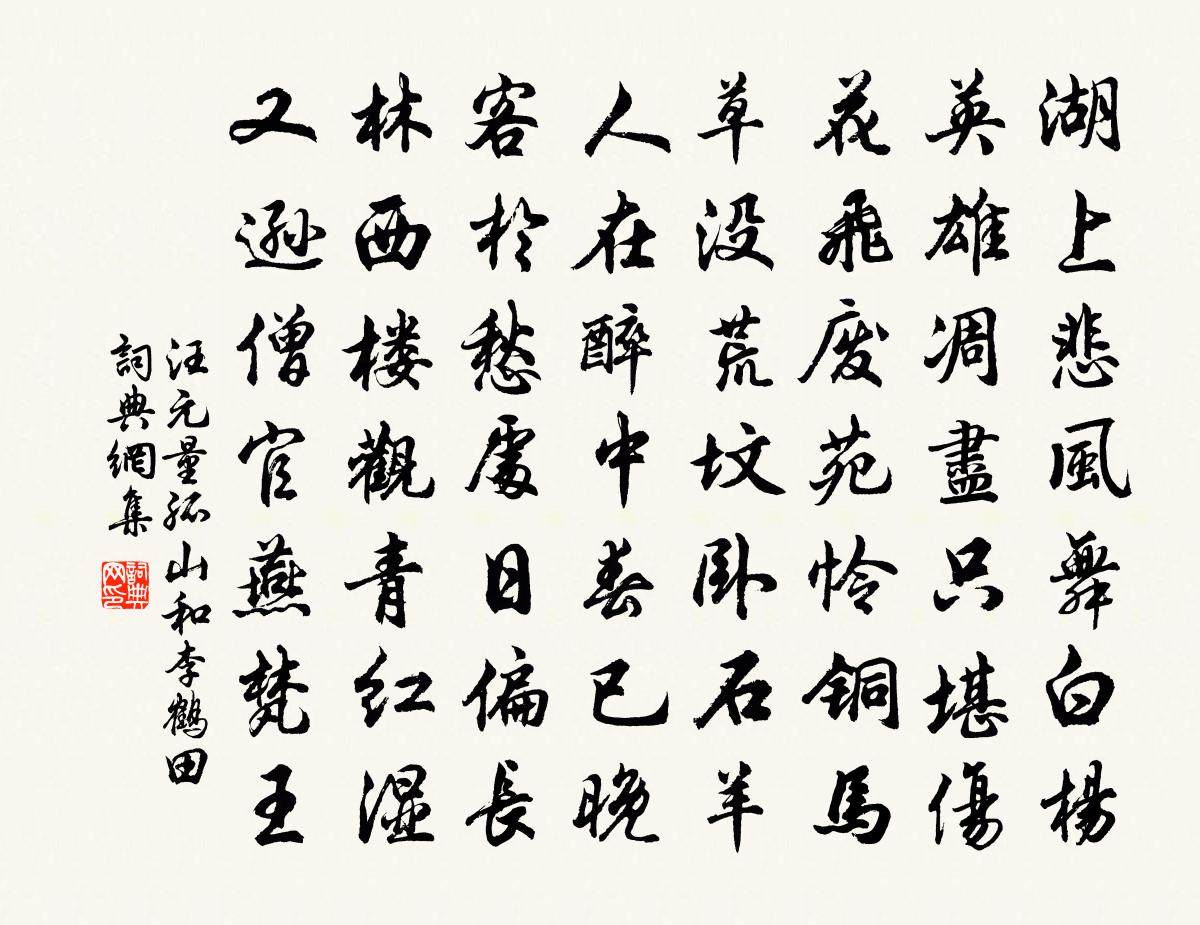 湖上悲風舞白楊
英雄凋盡只堪傷
花飛廢苑怜铜馬
草没荒坟卧石羊
人在醉中春已晚
客於愁處日偏長
林西楼觀青红湿
又遜僧官燕梵王
汪元量孤山和李鶴田
詞典網集
詞典网印